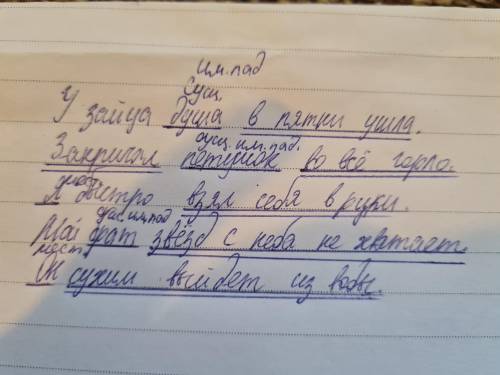 им.пад
Сущ.
У зайца душа в пятки ушла.
сущ. им. пад.
Закричал петушок во всё горло.
мест.
Я быстро взял себя в руки.
сущ. им. пад
Мой брат звёзд с неба не хватает.
мест
Я сухим выйдет из воды.